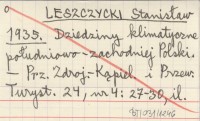 LESZCZYCKI Stanisław
1935. Dziedziny klimatyczne
południowo-zachodniej Polski.
- Prz. Zdroj.-Kąpiel. i Przew.
Turyst. 24, nr 4: 27-30, il.